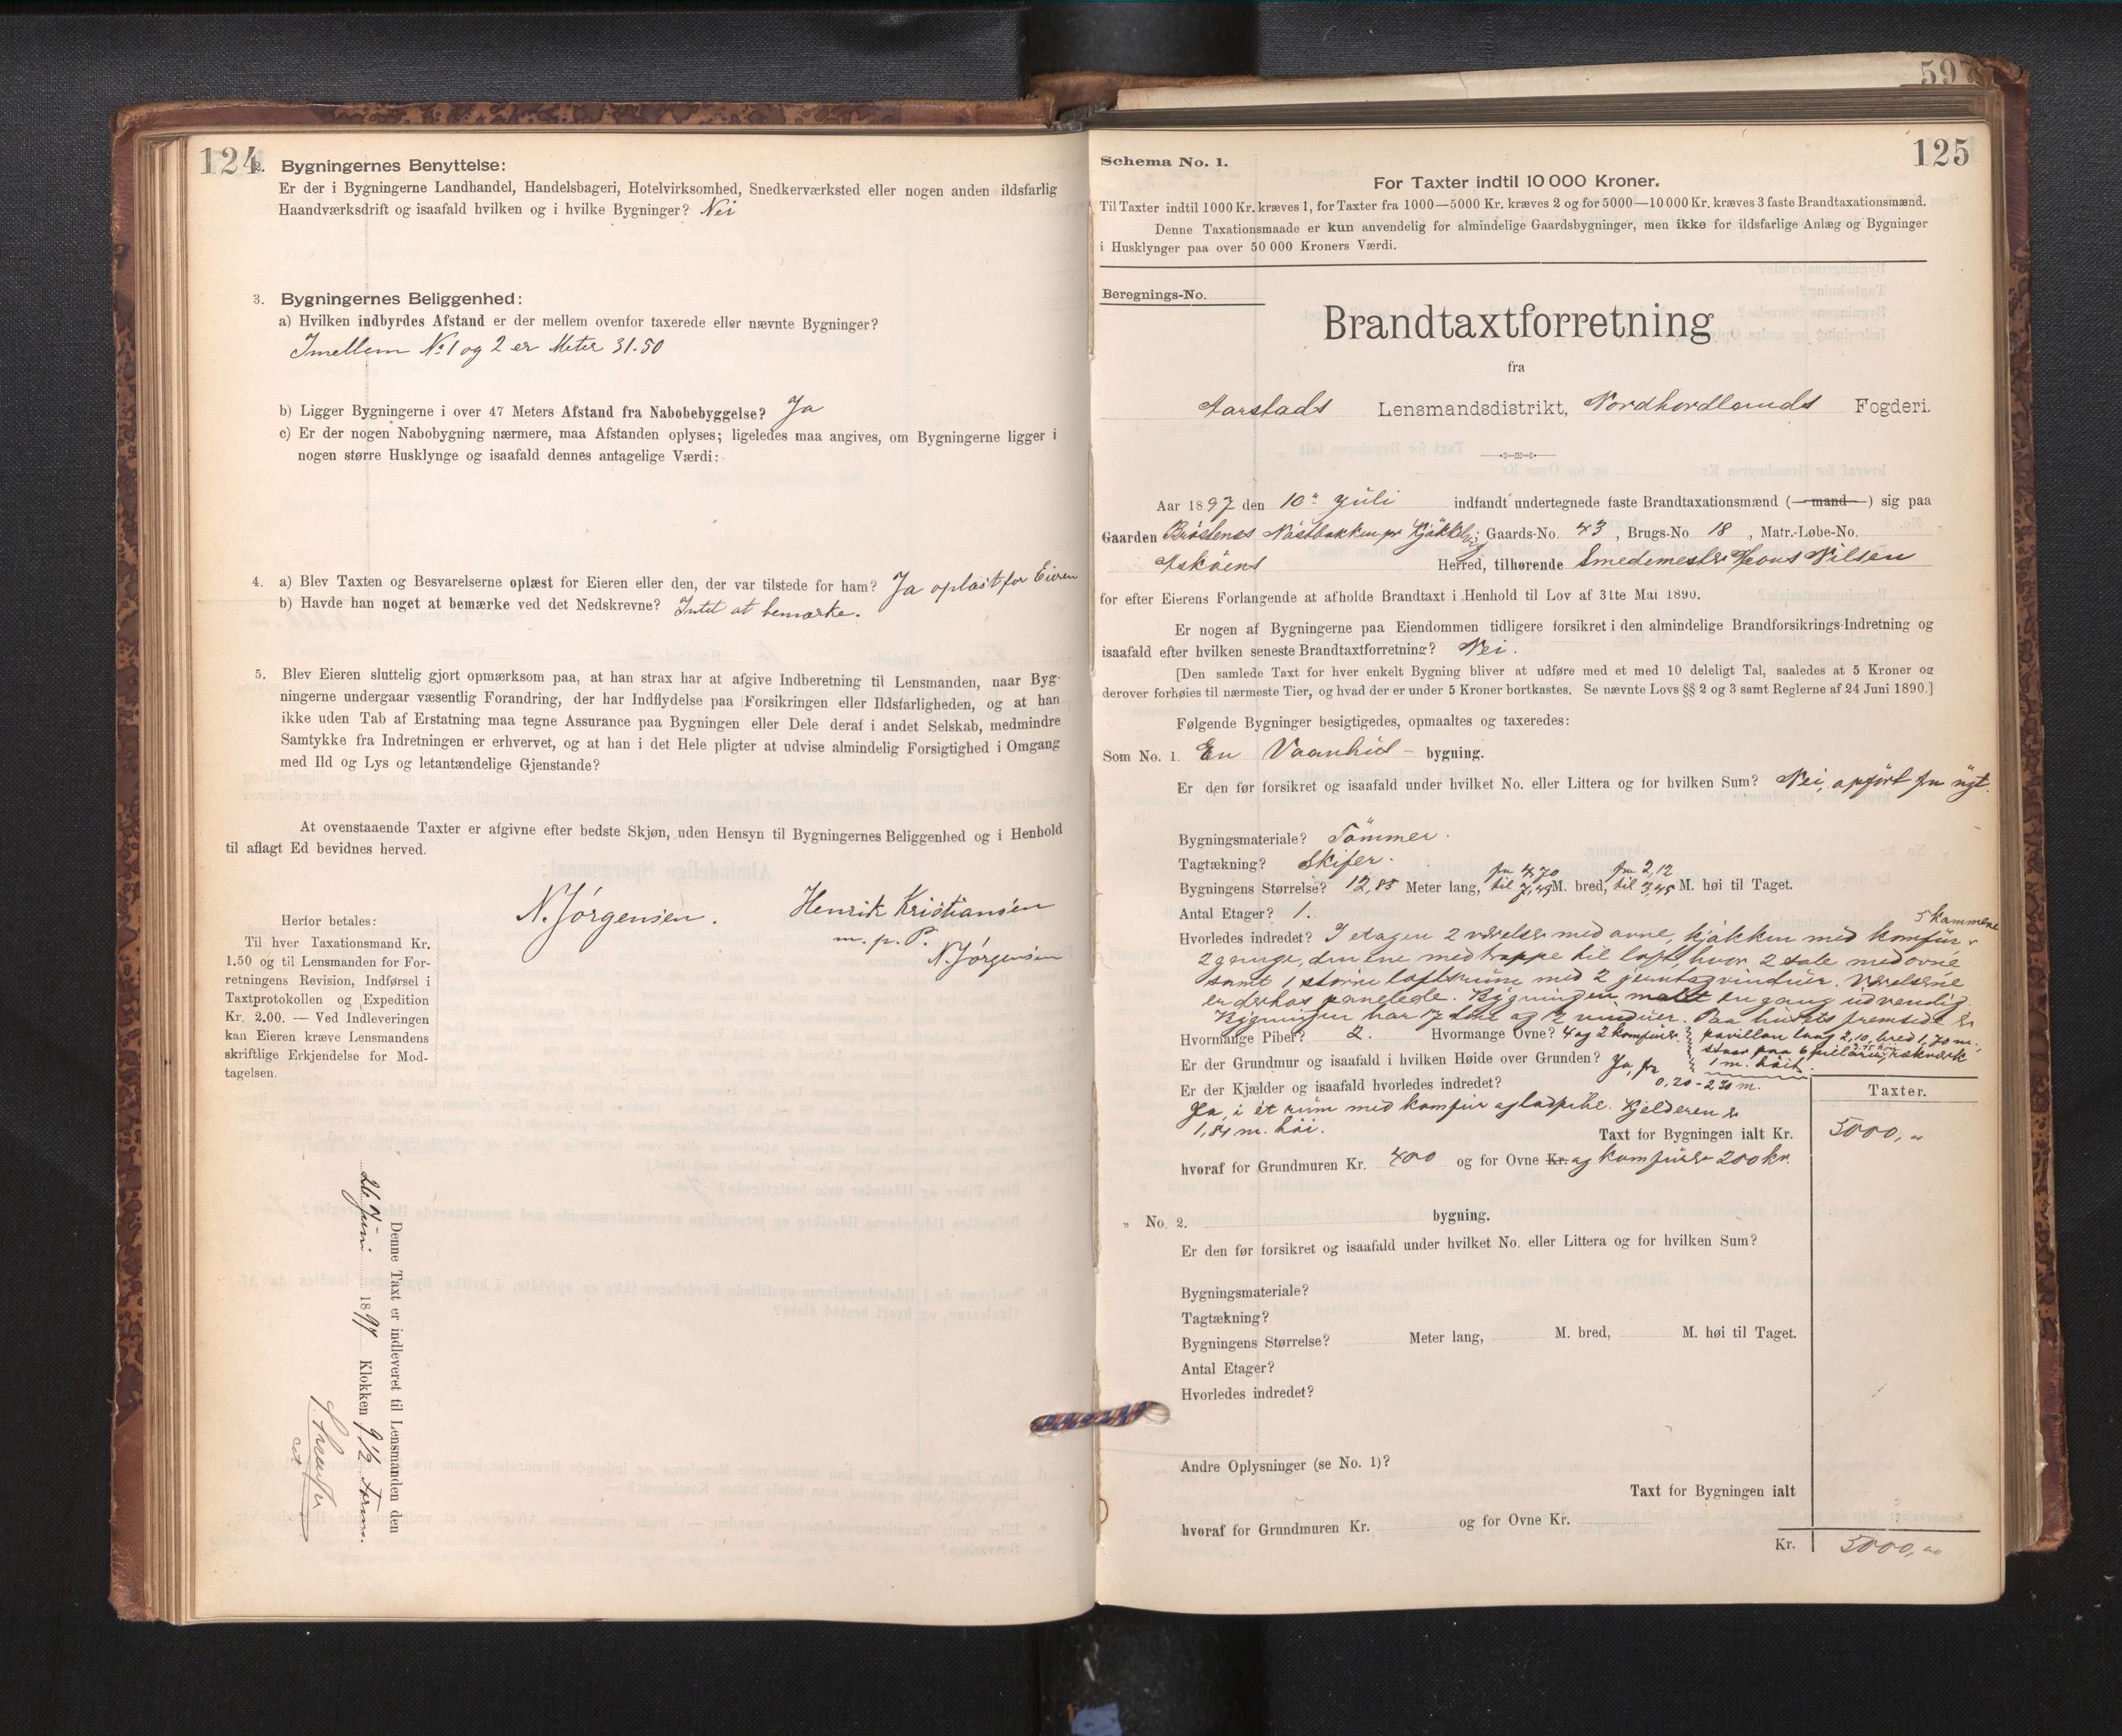 124
2. Bygningernes Benyttelse:
Er der i Bygningerne Landhandel, Handelsbageri, Hotelvirksomhed, Snedkerværksted eller nogen anden ildsfarlig
Haandværksdrift og isaafald hvilken og i hvilke Bygninger? Nei
3. Bygningernes Beliggenhed:
a) Hvilken indbyrdes Afstand er der mellem ovenfor taxerede eller nævnte Bygninger?
Imellem No 1 og 2 er Meter 31.50
b) Ligger Bygningerne i over 47 Meters Afstand fra Nabobebyggelse? Ja
c) Er der nogen Nabobygning nærmere, maa Afstanden oplyses; ligeledes maa angives, om Bygningerne ligger i
nogen større Husklynge og isaafald dennes antagelige Værdi:
4. a) Blev Taxten og Besvarelserne oplæst for Eieren eller den, der var tilstede for ham? Ja oplæst for Eieren
b) Havde han noget at bemærke ved det Nedskrevne? Intet at bemærke.
5. Blev Eieren sluttelig gjort opmærksom paa, at han strax har at afgive Indberetning til Lensmanden, naar Byg-
ningerne undergaar væsentlig Forandring, der har Indflydelse paa Forsikringen eller Ildsfarligheden, og at han
ikke uden Tab af Erstatning maa tegne Assurance paa Bygningen eller Dele deraf i andet Selskab, medmindre
Samtykke fra Indretningen er erhvervet, og at han i det Hele pligter at udvise almindelig Forsigtighed i Omgang
med Ild og Lys og letantændelige Gjenstande?
At ovenstaaende Taxter er afgivne efter bedste Skjøn, uden Hensyn til Bygningernes Beliggenhed og i Henhold
til aflagt Ed bevidnes herved.
N. Jørgensen. Henrik Kristiansen
m. p. P.
N. Jørgensen
Herfor betales:
Til hver Taxationsmand Kr.
1.50 og til Lensmanden for For-
retningens Revision, Indførsel i
Taxtprotokollen og Expedition
Kr. 2.00. — Ved Indleveringen
kan Eieren kræve Lensmandens
skriftlige Erkjendelse for Mod-
tagelsen.
Denne Taxt er indleveret til Lensmanden den
26 Juni 1897 Klokken 9 1/2 Form.
597
125
Schema No. 1.
For Taxter indtil 10 000 Kroner.
Til Taxter indtil 1000 Kr. kræves 1, for Taxter fra 1000—5000 Kr. kræves 2 og for 5000—10 000 Kr. kræves 3 faste Brandtaxationsmænd.
Denne Taxationsmaade er kun anvendelig for almindelige Gaardsbygninger, men ikke for ildsfarlige Anlæg og Bygninger
i Husklynger paa over 50 000 Kroners Værdi.
Beregnings-No.
Brandtaxtforretning
fra
Aarstads Lensmandsdistrikt, Nordhordlands Fogderi.
Aar 1897 den 10de Juli indfandt undertegnede faste Brandtaxationsmænd ( mand ) sig paa
Gaarden Nästbakken Gaards-No. 43, Brugs-No. 18, Matr.-Løbe-No.
Askøens Herred, tilhørende Smedemester Hans Nilsen
for efter Eierens Forlangende at afholde Brandtaxt i Henhold til Lov af 31te Mai 1890.
Er nogen af Bygningerne paa Eiendommen tidligere forsikret i den almindelige Brandforsikrings-Indretning og
isaafald efter hvilken seneste Brandtaxtforretning? Nei.
[Den samlede Taxt for hver enkelt Bygning bliver at udføre med et med 10 deleligt Tal, saaledes at 5 Kroner og
derover forhøies til nærmeste Tier, og hvad der er under 5 Kroner bortkastes. Se nævnte Lovs §§ 2 og 3 samt Reglerne af 24 Juni 1890.]
Følgende Bygninger besigtigedes, opmaaltes og taxeredes:
Som No. 1. En Vaanhus- bygning.
Er den før forsikret og isaafald under hvilket No. eller Littera og for hvilken Sum? Nei, opført fra nyt.
Bygningsmateriale? Tömmer.
Tagtækning? Skifer.
Bygningens Størrelse? 12,85 Meter lang, fra 4,70 til 7,49 M. bred, fra 2,12 til 3,45 M. høi til Taget.
Antal Etager? 1.
5 kammere
Hvorledes indredet? I etagen 2 værelser med ovne, kjøkken med komfür
2 gange, den ene med trappe til loft, hvor 2 sale med ovne
samt 1 större loftsrum med 2 vinduer. Værelserne
er derhos panelede. Bygningen malet en gang udvendig.
Bygningen har 17 döre og 12 vinduer. Paa husets fremside er
Hvormange Piber? 2. Hvormange Ovne? 4 og 2 komfürer. pavillon lang 2,10, bred 1,70 m.,
staar paa 6 pillarer, rækværk
1 m. höit
Er der Grundmur og isaafald i hvilken Høide over Grunden? Ja, fra
0,20-2,30 m.
Er der Kjælder og isaafald hvorledes indredet?
Ja, i ét rum med komfür og ladpibe. Kjelderen er
1,84 m. höi.
Taxter.
Taxt for Bygningen ialt Kr. 5000,"
hvoraf for Grundmuren Kr. 400 og for Ovne Kr. og komfürer 200 kr.
" No. 2. bygning.
Er den før forsikret og isaafald under hvilket No. eller Littera og for hvilken Sum?
Bygningsmateriale?
Tagtækning?
Bygningens Størrelse? Meter lang, M. bred, M. høi til Taget.
Antal Etager?
Hvorledes indredet?
Andre Oplysninger (se No. 1)?
Taxt for Bygningen ialt
hvoraf for Grundmuren Kr. og for Ovne Kr.
Kr. 5000,00